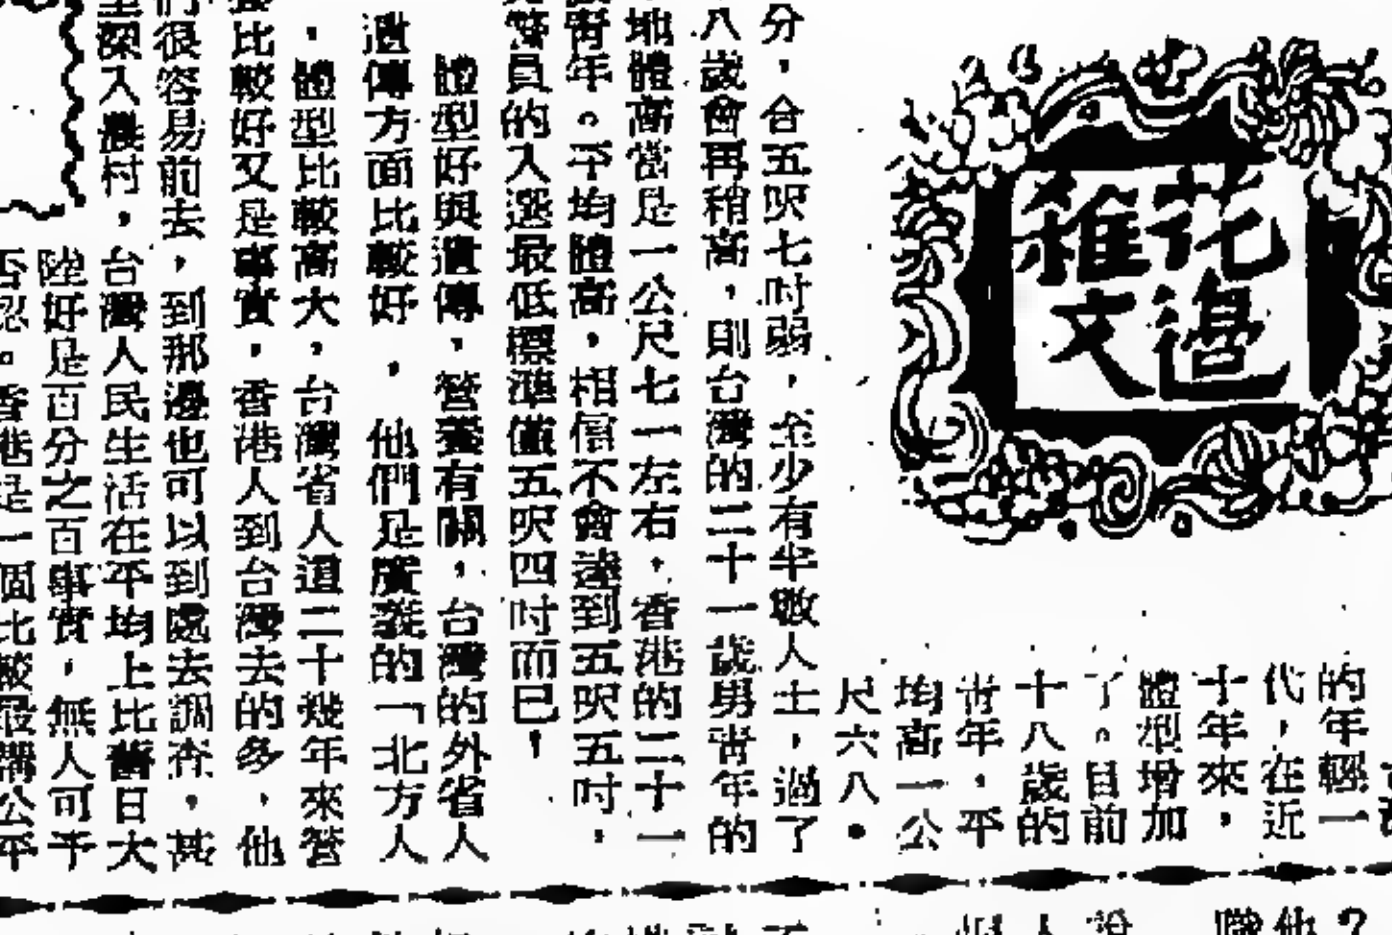 花邊
雜文
的年輕一
代，在近
十年來，
體型增加
了。目前
十八歲的
青年，平
均高一公
尺六八•
分，合五呎七吋弱，至少有半數人士，過了
八歲會再稍高，則台灣的二十一歲男靑年的
地體高當是一公尺七一左右，香港的二十一
靑年。平均體高，相信不會達到五呎五吋，
警員的入選最低標準僅五呎四吋而已！
體型好與遺傳，營養有關，台灣的外省人
遺傳方面比較好，他們是廣義的「北方人
，體型比較高大，台灣省人這二十幾年來營
比較好又是事實，香港人到台灣去的多，他
們很容易前去，到那邊也可以到處去調查，甚
至深入農村，台灣人民生活在平均上比舊日大
陸好是百分之百事實，無人可予
否認。香港是一個比較最講公平